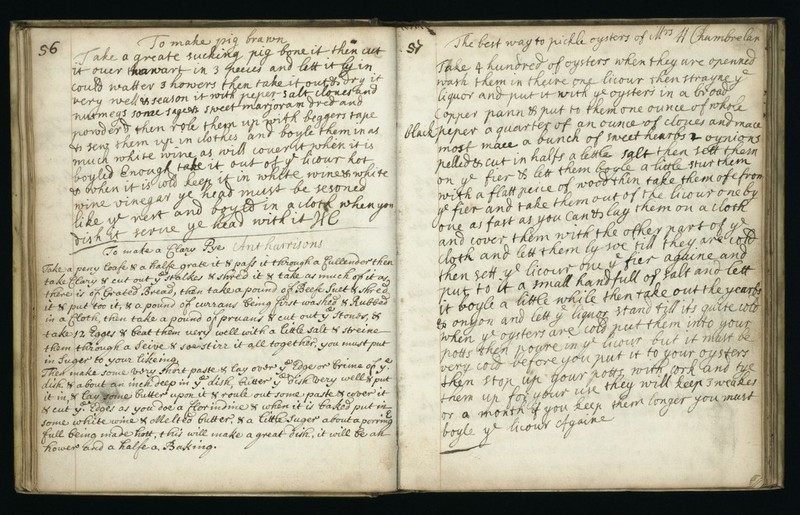 56
To make pig brawn
Take a greate sucking pig bone it then cut
it over thawart in 3 peeces and lett it ly in
could watter 3 howers then take it out & dry it
very well & season it with peper salt cloves and
nutmegs some sage & sweet marjoram dred and
powderd then role them up with beggers tape
& sow them up in clothes and boyle them in as
much white wine as will coverit when it is
boyled Enough take it out of ye licour hot
& when it is cold keep it in white wine & white
wine vinegar ye head must be sesoned
like ye rest and boyled in a cloth when you
dish it serve ye head with it
To make a Clary Pye Ant harrisons
Take a peny loafe & a halfe grate it & pass it through a Cullender then
take Clary & cut out ye stalkes & shred it & take as much of it as
there is of Grated Bread, then take a pound of Beefe Suet & shred
it & put to it, & a pound of currans being first washed & Rubbed
in a Cloth, then take a pound of pruans & cut out ye Stones, &
take 12 Egges & beat them very well with a little Salt & streine
them through a Seive & soe stirr it all together, you must put
in Suger to your likeing.
Then make some very short paste & lay over ye Edge or brime of ye
dish & about an inch deep in ye dish, butter ye dish very well & put
it in, & lay some butter upon it & roule out some paste & cover it
& cut ye Edges as you doe a florindine & when it is baked put in
some white wine & Melted butter, & a little Suger about a porringer
full being made hott, this will make a great dish, it will be an
hower and a halfe a Baking.
57
The best way to pickle oysters of Mrs H Chambrelan
Take 4 hundred of oysters when they are openned
wash them in theire one licour then strayne ye
liquor and put it with ye oysters in a broad
Copper pann & put to them one ounce of whole
black peper a quarter of an ounce of cloves and mace
most mace a bunch of sweet hearbs 2 oynions
pelled & cut in halfs a little salt then sett them
on ye fier & lett them boyle a little stur them
with a flatt peice of wood thin take them ofe from
ye fier and take them out of the licour one by
one as fast as you can & lay them on a cloth
and cover them with the other part of ye
cloth and lett them ly soe till they are cold
then sett ye licour one ye fier againe and
put to it a small handfull of salt and lett
it boyle a little while then take out the yearbs
& onyon and lett ye liquor stand till its quite cold
when ye oysters are cold put them into your
potts then poure in ye licour but it must be
very cold before you put it to your oysters
then stop up your potts with cork and tye
them up for your use they will keep 3 weakes
or a month if you keep them longer you must
boyle ye licour againe